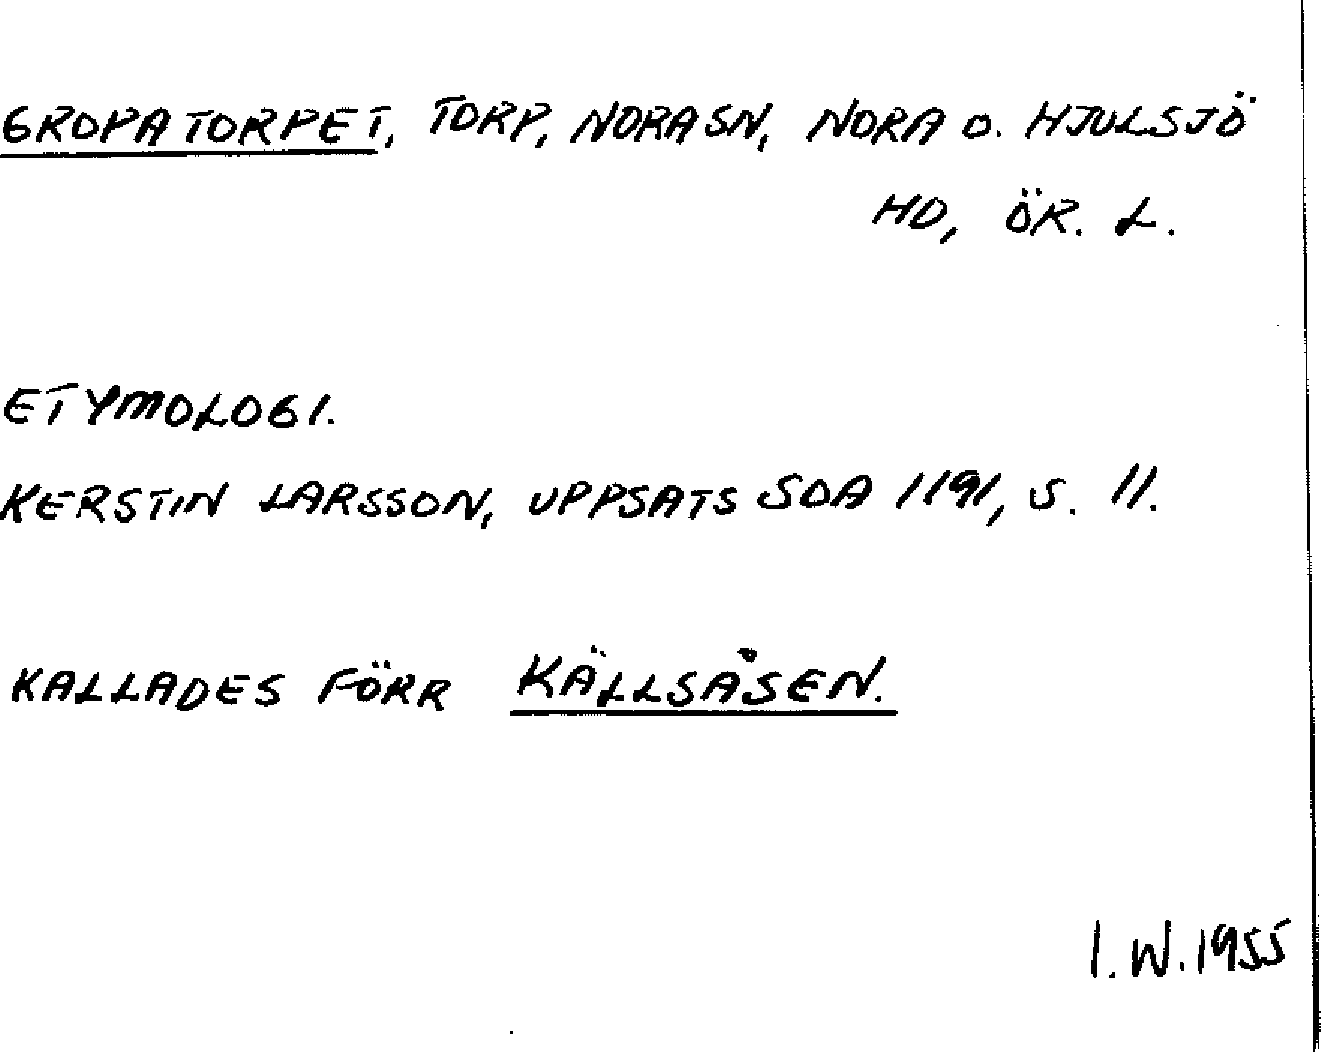 GROPATORPET, TORP, NORA SN, NORA O. HJULSJÖ
HD, ÖR. L.
ETYMOLOGI.
KERSTIN LARSSON, UPPSATS SOA 1191, S. 11.
KALLADES FÖRR KÄLLSÅSEN.
I.W.1955